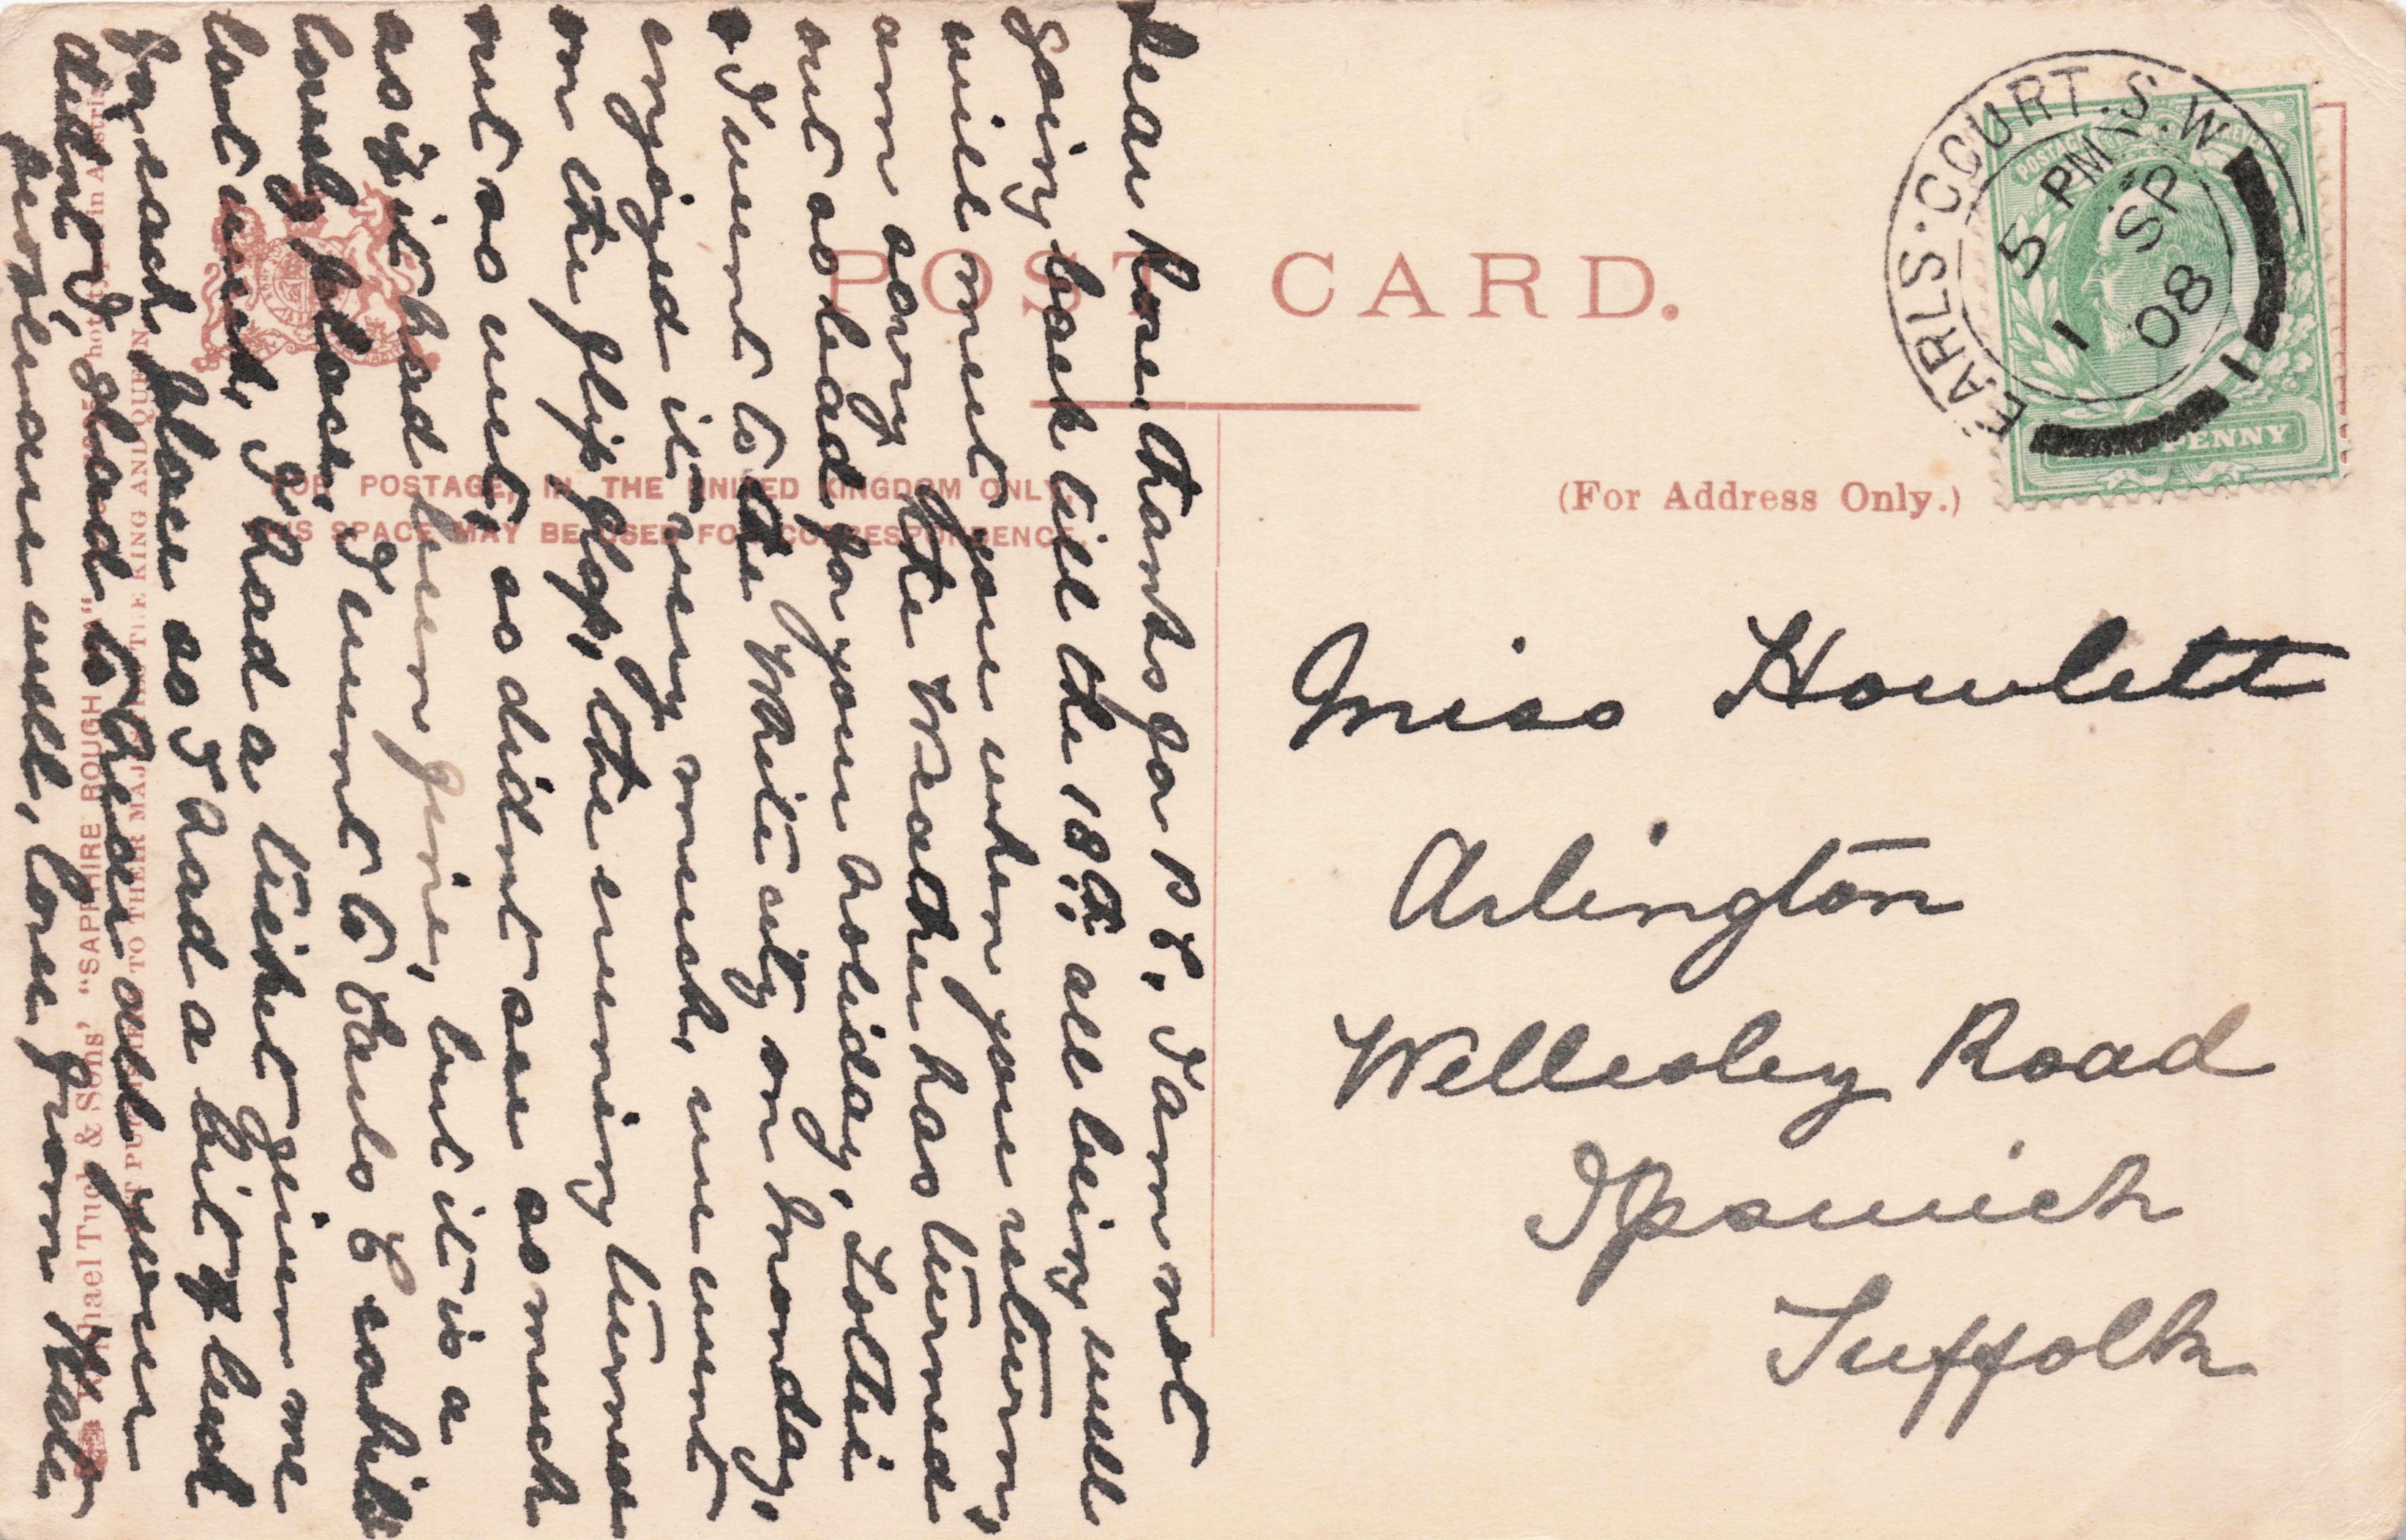 POST CARD.
(For Address Only.)
FOR POSTAGE, IN THE UNITED KINGDOM ONLY,
THIS SPACE MAY BE USED FOR CORRESPONDENCE.
EARLS.COURT.S.W.
5 PM
1 SP
08
PENNY
Miss Howlett
Arlington
Wellesley Road
Ipswich
Suffolk
Dear Rose, thanks for P C, I am not
going back till the 18th, all being well
will meet you when you return,
am sorry the weather has turned
out so bad for your holiday, Lottie
& I went to the White city on Monday,
enjoyed it very much, we went
on the flip flap, the evening turned
out so wet, so didnt see as much
as if it had been fine, but it is a
lovely place, I went to Earls C
last week, I had a ticket given me
for each place so I had a bit of luck
didnt I, glad to hear all your
are well, love from
Raphael Tuck & Sons' "SAPPHIRE ROUGH
TO THEIR MAJESTIES THE KING AND QUEEN